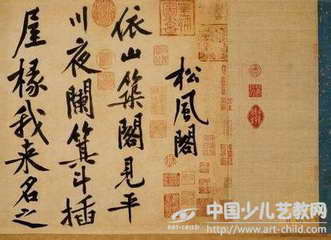 松風閣
依山築閣見平
川夜闌箕斗插
屋椽我来名之
中国少儿艺教网
http://www.art-child.com